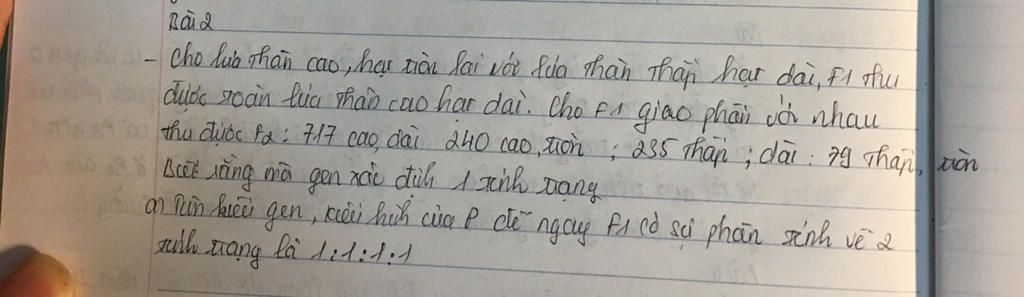 Bài 2
- Cho lúa thân cao, hạt tròn lai với lúa thân thấp hạt dài, F1 thu
được toàn lúa thân cao hạt dài. Cho F1 giao phấn với nhau
thu được F2: 717 cao, dài 240 cao, tròn ; 235 thấp ; dài : 79 thấp, tròn
Biết rằng mỗi gen xác định 1 tính trạng
a) Tìm kiểu gen, kiểu hình của P để ngay F1 có sự phân tính về 2
tính trạng là 1:1:1:1